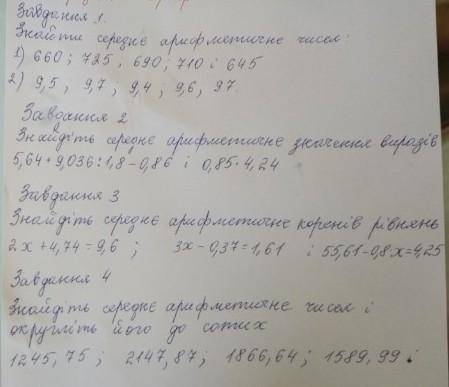 Завдання 1.
Знайти середнє арифметичне чисел:
1) 660; 725, 690; 710 і 645
2) 9,5; 9,7; 9,4; 9,6, 97.
Завдання 2
Знайдіть середнє арифметичне значення виразів
5,64+9,036:1,8-0,86 і 0,85·4,24
Завдання 3
Знайдіть середнє арифметичне коренів рівнянь
2x+4,74=9,6; 3x-0,37=1,61 і 55,61-0,8x=4,25
Завдання 4
Знайдіть середнє арифметичне чисел і
округліть його до сотих
1245,75; 2147,87; 1866,64; 1589,99 і